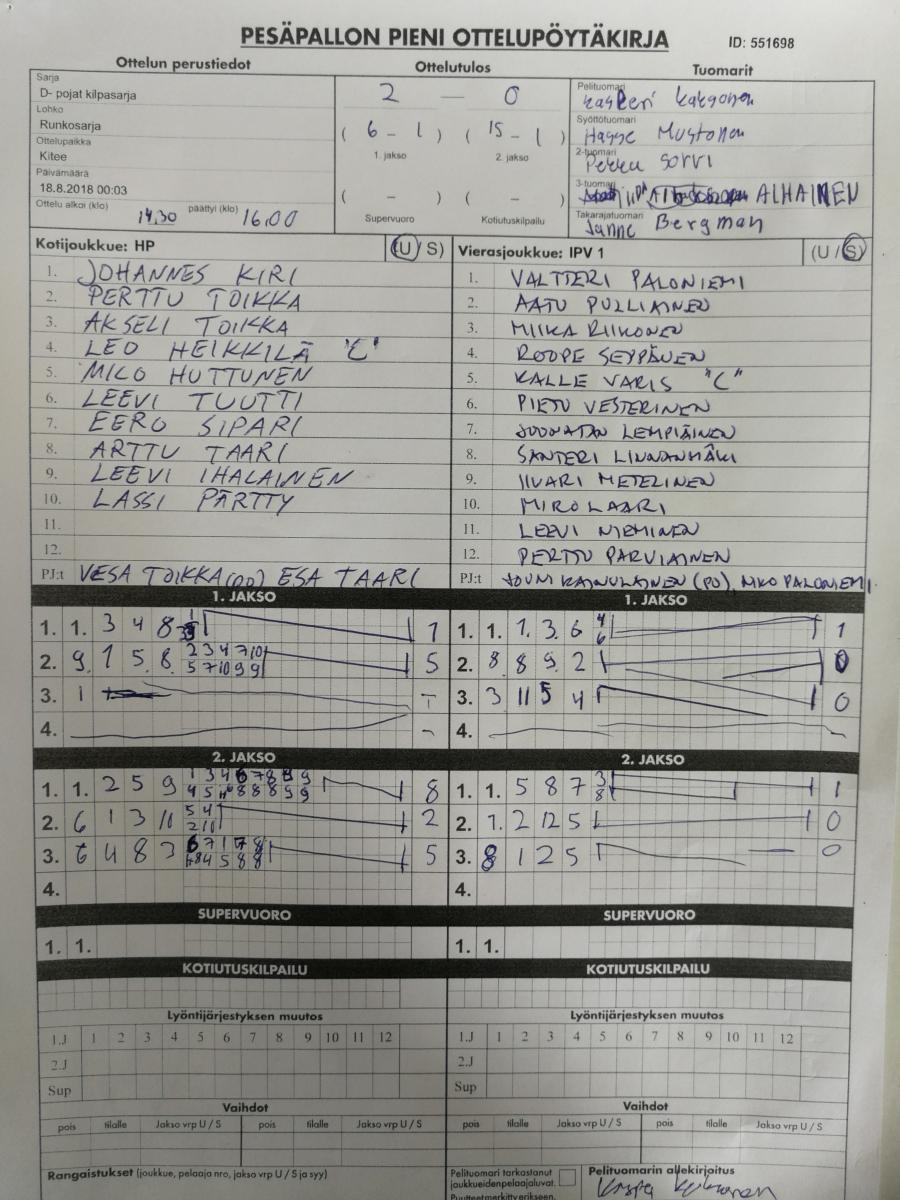 PESÄPALLON PIENI OTTELUPÖYTÄKIRJA
ID: 551698
Ottelun perustiedot
Ottelutulos
Tuomarit
Sarja
D- pojat kilpasarja
Lohko
Runkosarja
Ottelupaikka
Kitee
Päivämäärä
18.8.2018 00:03
Ottelu alkoi (klo) 14.30 päättyi (klo) 16.00
2 — 0
( 6 - 1 ) ( 15 - 1 )
1. jakso 2. jakso
( - ) ( - )
Supervuoro Kotiutuskilpailu
Pelituomari
Syöttötuomari
Mustonen
2-tuomari
Pekka Sorvi
3-tuomari
ALHAINEN
Takarajatuomari
Janne Bergman
Kotijoukkue: HP (U / S)
1. JOHANNES KIRI
2. PERTTU TOIKKA
3. AKSELI TOIKKA
4. LEO HEIKKILÄ "C"
5. MICO HUTTUNEN
6. LEEVI TUUTTI
7. EERO SIPARI
8. ARTTU TAARI
9. LEEVI IHALAINEN
10. LASSI PÄRTTY
11.
12.
PJ:t VESA TOIKKA (PJ) ESA TAARI
Vierasjoukkue: IPV 1 (U / S)
1. VALTTERI PALONIEMI
2. AATU PULLIAINEN
3. MIIKA RIIKONEN
4. ROOPE SEPPÄNEN
5. KALLE VARIS "C"
6. PIETU VESTERINEN
7. JOONATAN LEMPIÄINEN
8. SANTERI LINNANMÄKI
9. IIVARI METELINEN
10. MIRO LAARI
11. LEEVI NIEMINEN
12. PERTTU PARVIAINEN
PJ:t JOUNI KAINULAINEN (PJ), MIKO PALONIEMI
1. JAKSO
1. 1. 3 4 8 1
2. 9 1 5 8 2 3 4 7 10 5
5 7 10 9 9
3. 1 -
4. -
1. JAKSO
1. 1. 1 3 6 4 1
6
2. 8 8 9 2 0
3. 3 11 5 4 0
4.
2. JAKSO
1. 1. 2 5 9 8
2. 6 1 3 11 5 4 2
2 11
3. 6 4 8 3 5
4.
2. JAKSO
1. 1. 5 8 7 3 1
8
2. 1. 2 12 5 0
3. 8 1 2 5 0
4.
SUPERVUORO
1. 1.
SUPERVUORO
1. 1.
KOTIUTUSKILPAILU
KOTIUTUSKILPAILU
Lyöntijärjestyksen muutos
1.J 1 2 3 4 5 6 7 8 9 10 11 12
2.J
Sup
Lyöntijärjestyksen muutos
1.J 1 2 3 4 5 6 7 8 9 10 11 12
2.J
Sup
Vaihdot
pois tilalle Jakso vrp U / S pois tilalle Jakso vrp U / S
Vaihdot
pois tilalle Jakso vrp U / S pois tilalle Jakso vrp U / S
Rangaistukset (joukkue, pelaaja nro, jakso vrp U / S ja syy)
Pelituomari tarkastanut
joukkueidenpelaajaluvat.
Puutteet merkittv erikseen.
Pelituomarin allekirjoitus